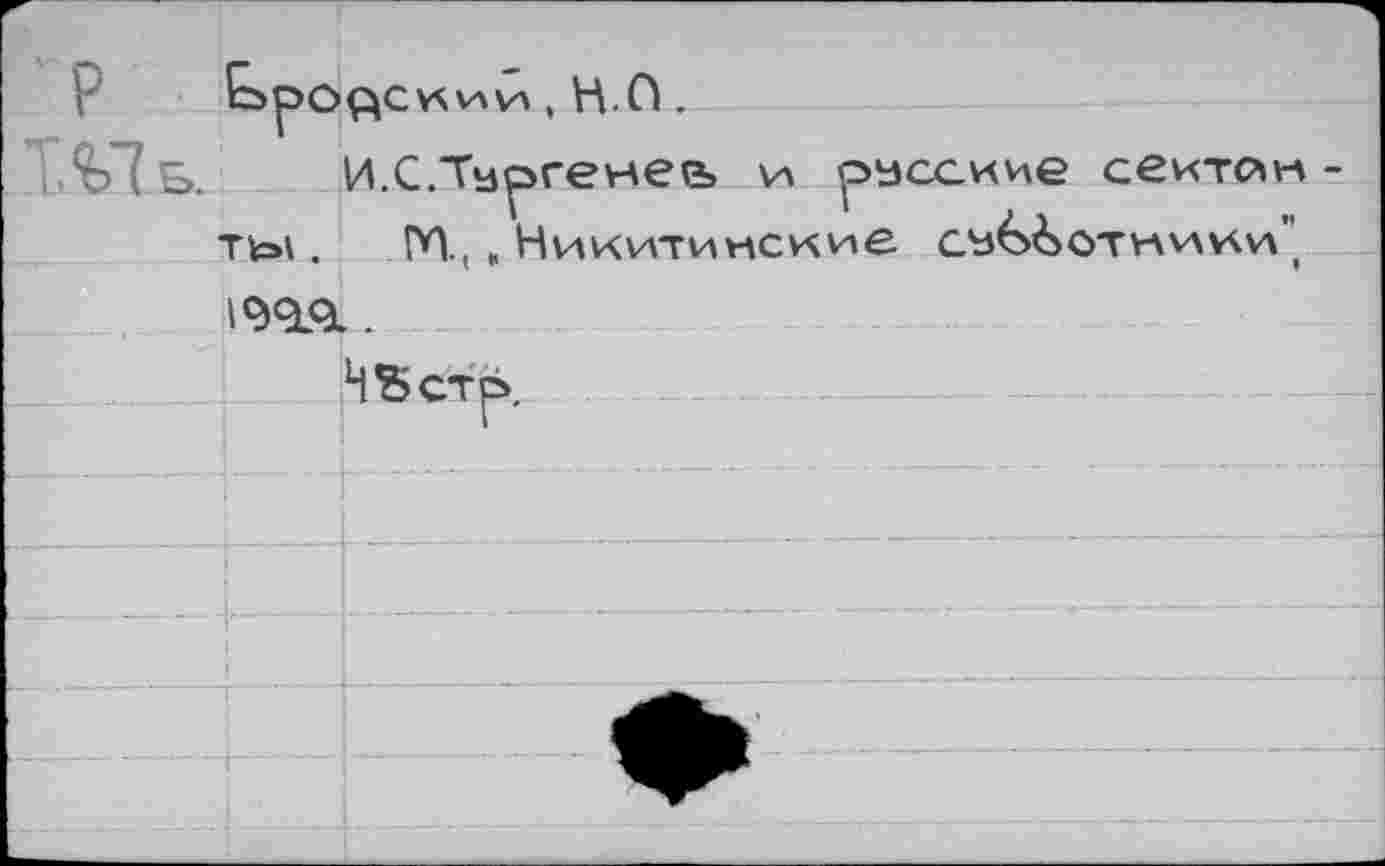 Р Бродский, Н.Л.
Т.87 Б. И.С.Тургенев и русские сектан-
ты. М., „Никитинские субботники",
1922.
48 стр.